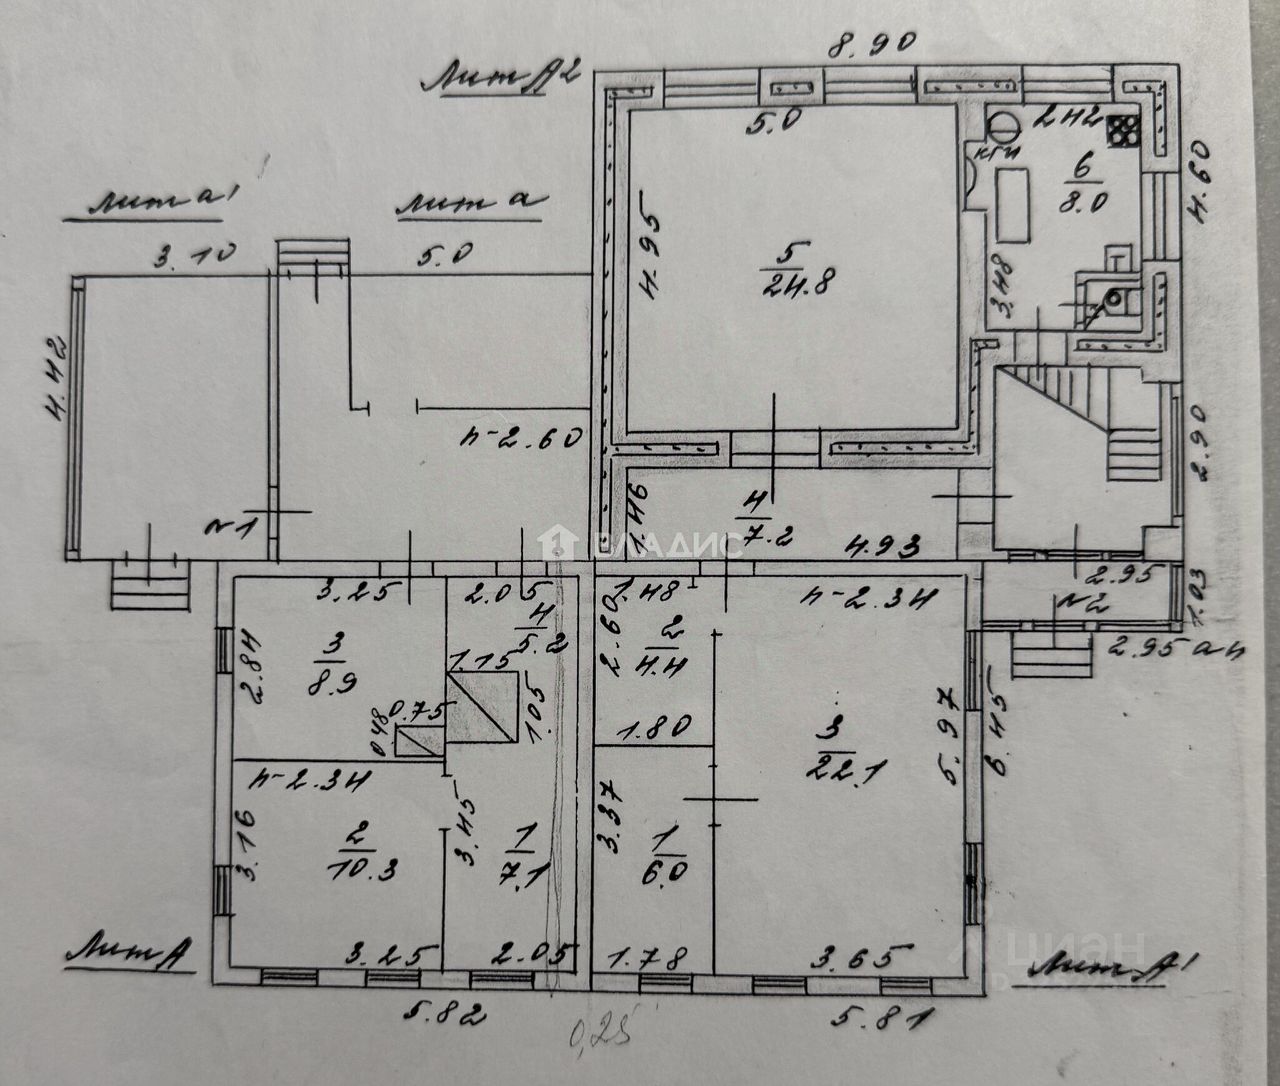 8.90
Лит А2
5.0
2.42
КГИ
6
8.0
4.60
Лит а1
Лит а
3.10
5.0
4.95
5
24.8
3.48
4.42
h-2.60
2.90
№1
1.46
4
7.2
4.93
ВЛАДИС
2.95
№2
1.03
2.95
3.25
2.05
1.48
h-2.34
4
5.2
2.60
2
4.4
2.84
3
8.9
1.15
1.05
0.75
0.48
1.80
3
22.1
5.97
6.45
h-2.34
3.16
2
10.3
3.45
1
7.1
3.37
1
6.0
Лит А
3.25
2.05
1.78
3.65
циан
Лит А1
5.82
0,25
5.81